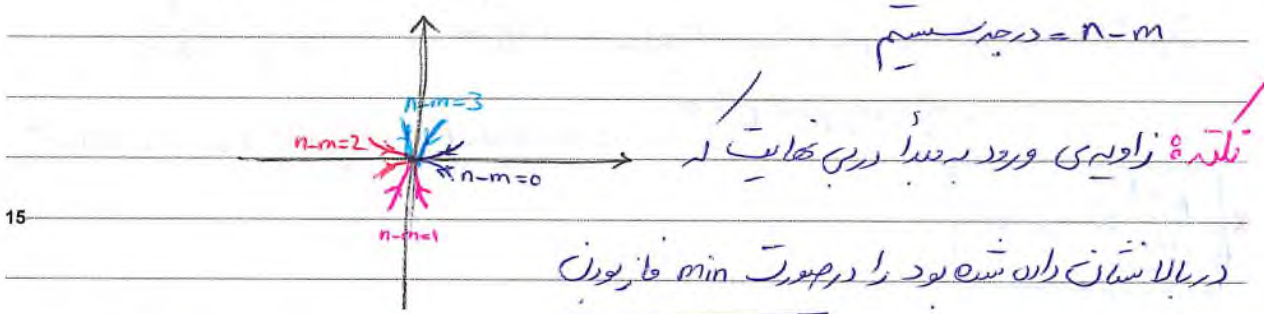 n-m = درجه سیستم
n-m=3
n-m=2
n-m=0
n-m=1
نکته: زاویه‌ی ورود به مبدأ در بی نهایت که
15
در بالا نشان داده شده بود را در صورت min فاز بودن